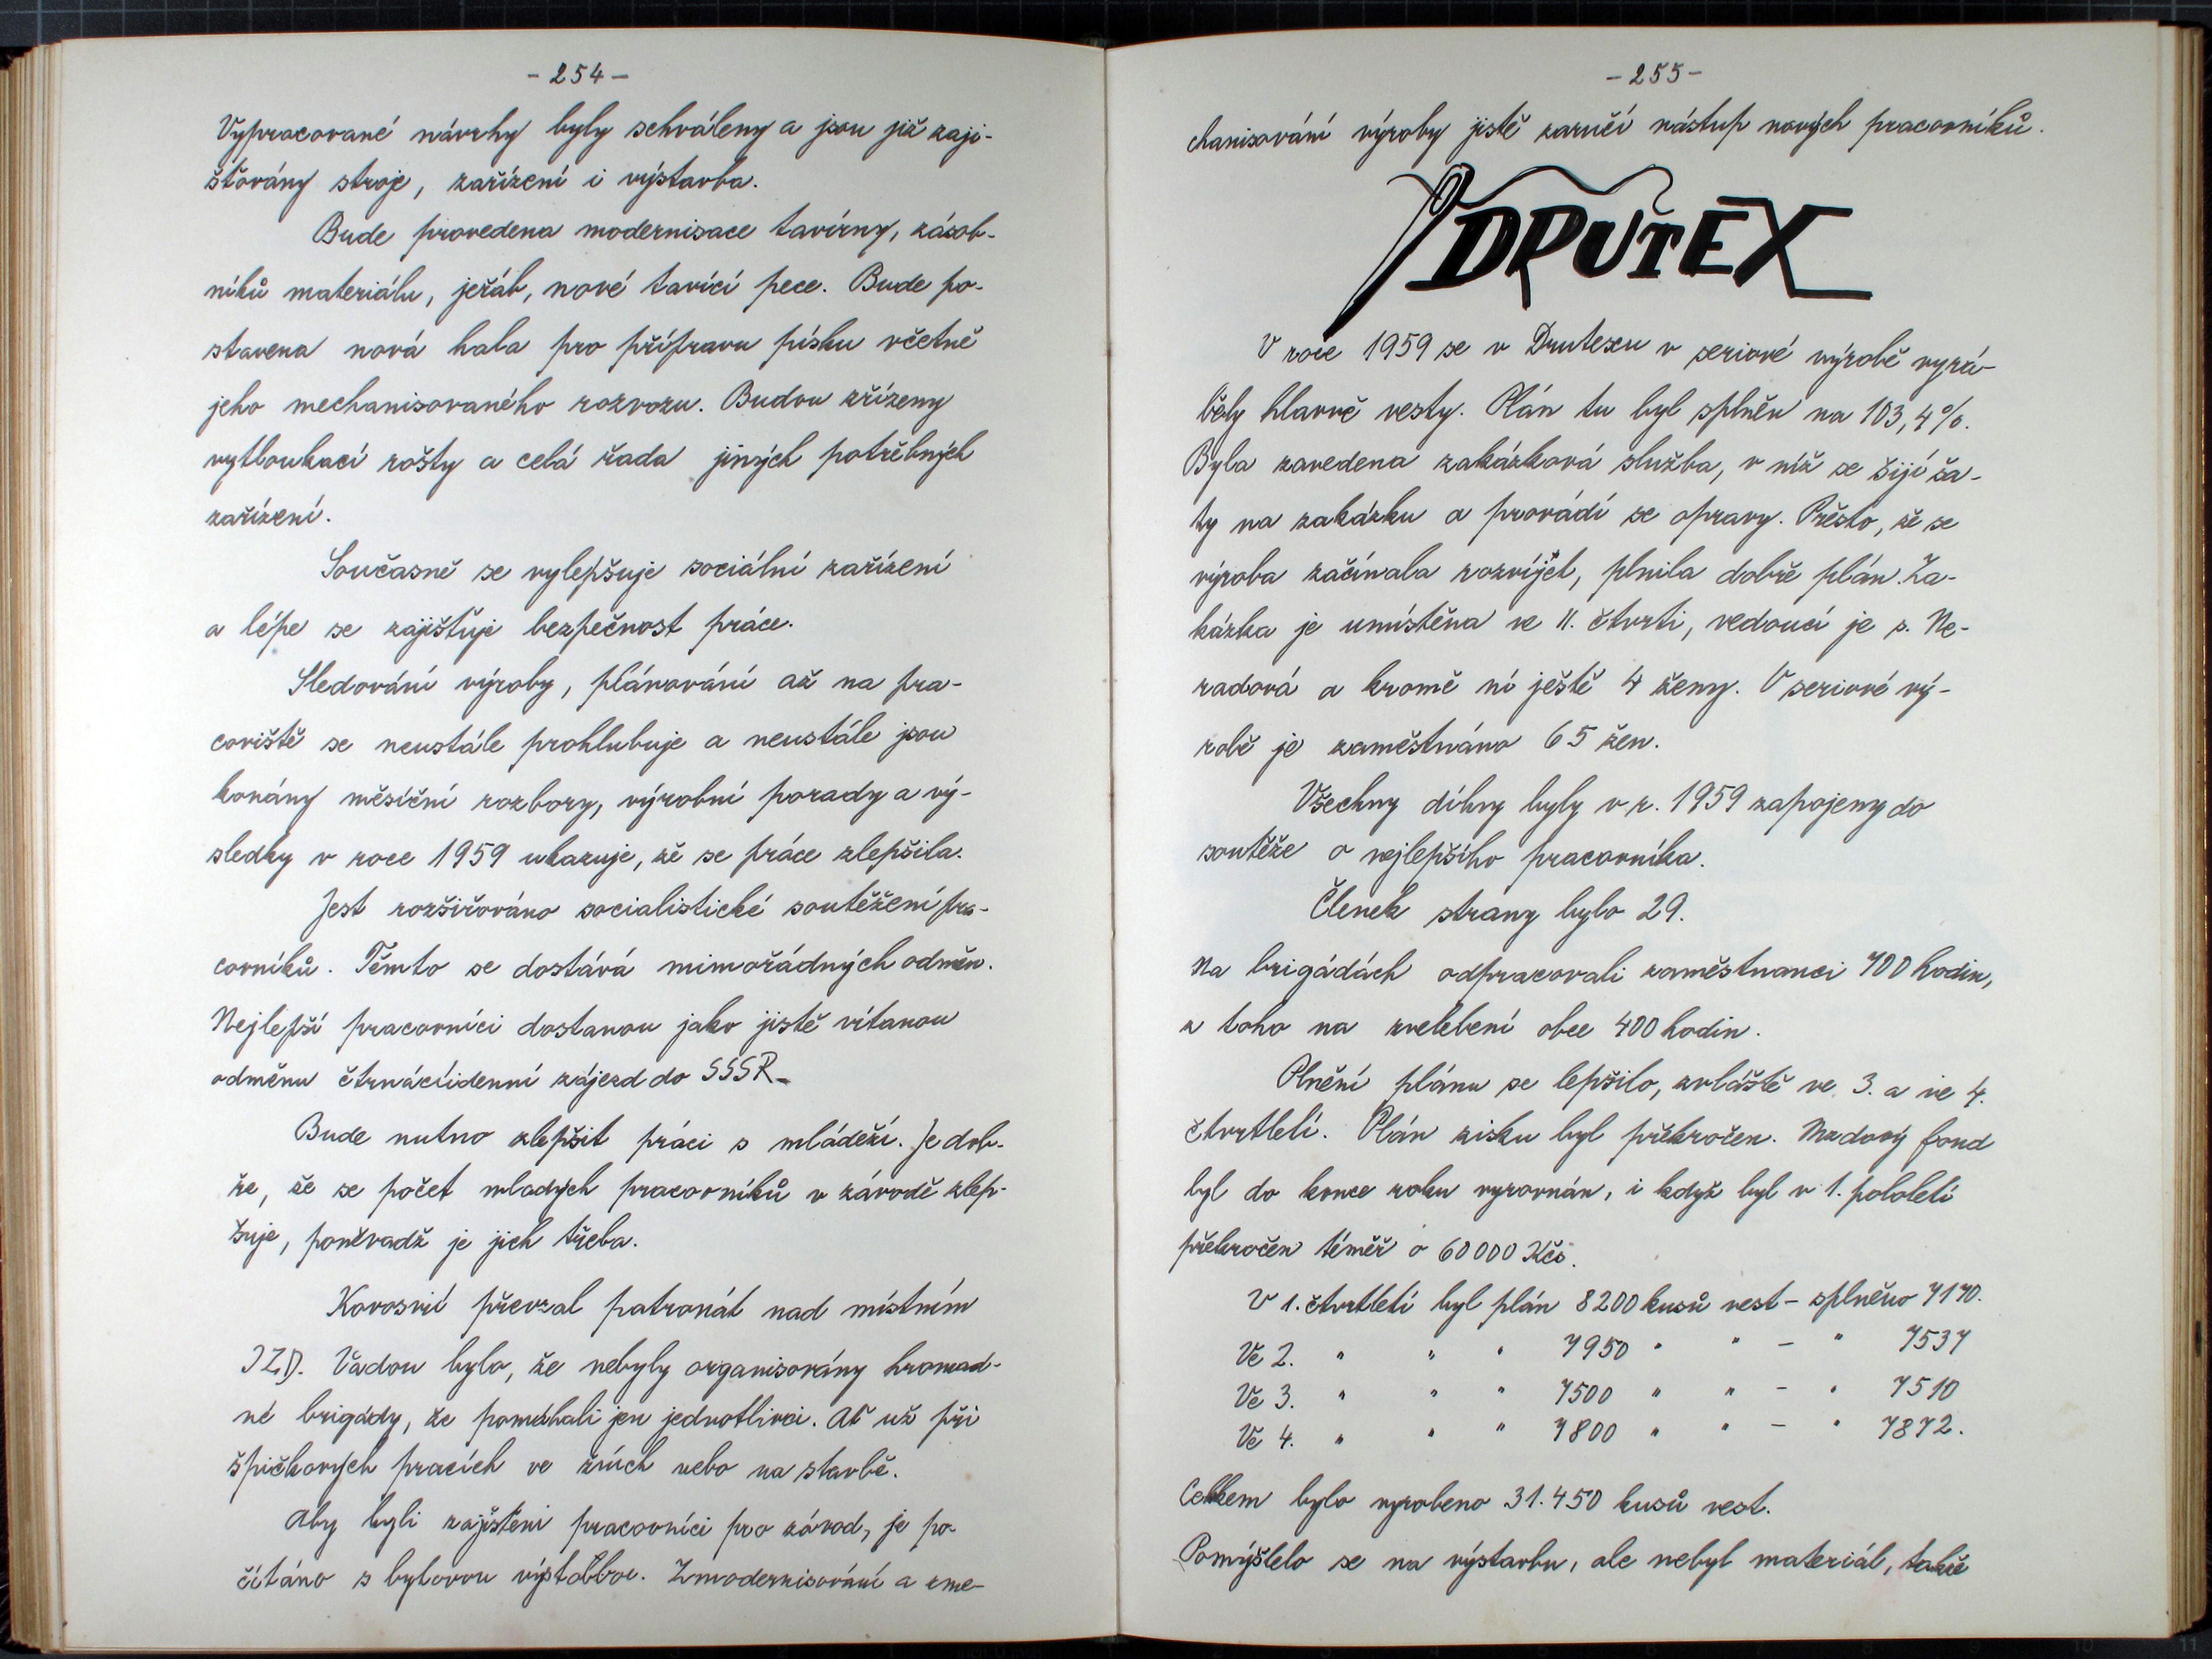 - 254 -
Vypracované návrhy byly schváleny a jsou již zaji-
šťovány stroje, zařízení i výstavba.
Bude provedena modernisace tavírny, zásob-
níků materiálu, jeřáb, nové tavící pece. Bude po-
stavena nová hala pro přípravu písku včetně
jeho mechanisovaného rozvozu. Budou zřízeny
vytloukací rošty a celá řada jiných potřebných
zařízení.
Současně se vylepšuje sociální zařízení
a lépe se zajišťuje bezpečnost práce.
Sledování výroby, plánování až na pra-
coviště se neustále prohlubuje a neustále jsou
konány měsíční rozbory, výrobní porady a vý-
sledky v roce 1959 ukazuje, že se práce zlepšila.
Jest rozšiřováno socialistické soutěžení pra-
covníků. Těmto se dostává mimořádných odměn.
Nejlepší pracovníci dostanou jako jistě vítanou
odměnu čtrnáctidenní zájezd do SSSR.
Bude nutno zlepšit práci s mládeží. Je dob-
ře, že se počet mladých pracovníků v závodě zlep-
šuje, poněvadž je jich třeba.
Kovosvit převzal patronát nad místním
JZD. Vadou bylo, že nebyly organisovány hromad-
né brigády, že pomáhali jen jednotlivci. Ať už při
špičkových pracích ve žních nebo na stavbě.
Aby byli zajištěni pracovníci pro závod, je po-
čítáno s bytovou výstavbou. Zmodernisování a zme-
- 255 -
chanisování výroby jistě zaručí nástup nových pracovníků.
DRUTEX
V roce 1959 se v Drutexu v seriové výrobě vyrá-
běly hlavně vesty. Plán tu byl splněn na 103,4%.
Byla zavedena zakázková služba, v níž se šijí ša-
ty na zakázku a provádí se opravy. Přesto, že se
výroba začínala rozvíjet, plnila dobře plán. Za-
kázka je umístěna ve II. čtvrti, vedoucí je s. Ne-
radová a kromě ní ještě 4 ženy. V seriové vý-
robě je zaměstnáno 65 žen.
Všechny dílny byly v r. 1959 zapojeny do
soutěže o nejlepšího pracovníka.
Členek strany bylo 29.
Na brigádách odpracovali zaměstnanci 700 hodin,
z toho na zvelebení obce 400 hodin.
Plnění plánu se lepšilo, zvláště ve 3. a ve 4.
čtvrtletí. Plán zisku byl překročen. Mzdový fond
byl do konce roku vyrovnán, i když byl v 1. pololetí
překročen téměř o 60000 Kčs.
V 1. čtvrtletí byl plán 8200 kusů vest - splněno 7170.
Ve 2. " " " 7950 " " - " 7537
Ve 3. " " " 7500 " " - " 7510
Ve 4. " " " 7800 " " - " 7872.
Celkem bylo vyrobeno 31.450 kusů vest.
Pomýšlelo se na výstavbu, ale nebyl materiál, takže